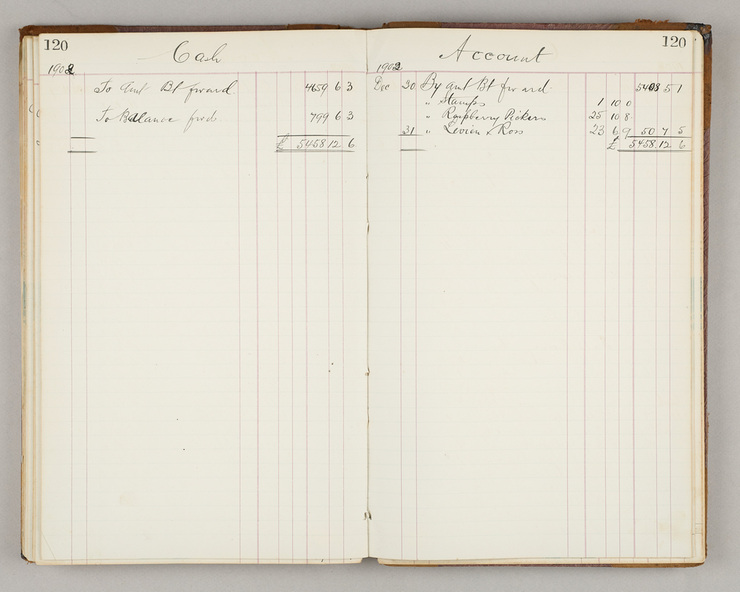 120
Cash
1902
To Amt Bt forward 4659 6 3
To Balance fwd 799 6 3
£ 5458 12 6
Account
120
1902
Dec 30 By Amt Bt forward 5408 5 1
" Stamps 1 10 0
" Raspberry Pickers 25 10 8
31 " Levien & Ross 23 6 9 50 7 5
£ 5458 12 6